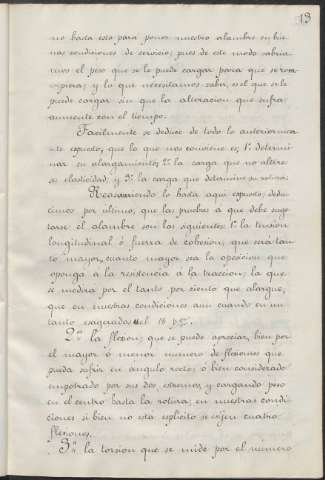 13
no basta esto para poner nuestro alambre en bue-
nas condiciones de servicio; pues de este modo sabria-
mos el peso que se le puede cargar para que se rom-
piera; y lo que necesitamos saber, es el que se le
puede cargar sin que la alteracion que sufra
aumente con el tiempo.
Facilmente se deduce de todo lo anteriorme-
te espuesto, que lo que nos conviene es, 1º determi-
nar su alargamiento, 2º la carga que no altere
su elasticidad, y 3º la carga que determine su rotura.
Reasumiendo lo hasta aqui espuesto, dedu-
cimos por ultimo, que las pruebas á que debe suge-
tarse el alambre son las siguientes: 1ª la tension
longitudinal ó fuerza de cohesion, que será tan-
to mayor, cuanto mayor sea la oposicion que
oponga á la resistencia á la traccion; la que
se medira por el tanto por ciento que alargue,
que en nuestras condiciones aun cuando en un
tanto exagerada, el 18 p%.
2ª la flexion; que se puede apreciar, bien por
el mayor ó menor numero de flexiones que
pueda sufrir en angulo recto; ó bien considerado
empotrado por sus dos estremos, y cargando peso
en el centro hasta la rotura; en nuestras condi-
ciones si bien no esta esplicito se exijen cuatro
flexiones.
3ª la torsion que se mide por el número